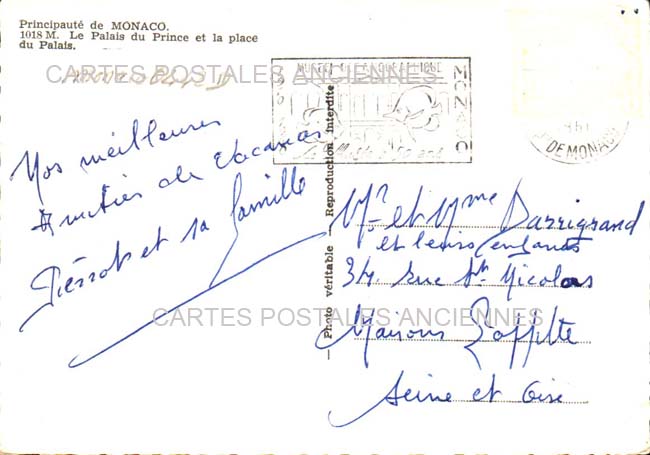 Principauté de MONACO.
1018 M. Le Palais du Prince et la place
du Palais.
CARTES POSTALES ANCIENNES
MONACO
DE MONACO
Nos meilleures
Amitiés de Vacances
Pierrot et sa famille
— Photo véritable Reproduction interdite
Mr et Mme Darrigrand
et leurs enfants
34 rue St Nicolas
Maisons Laffitte
Seine et Oise
CARTES POSTALES ANCIENNES